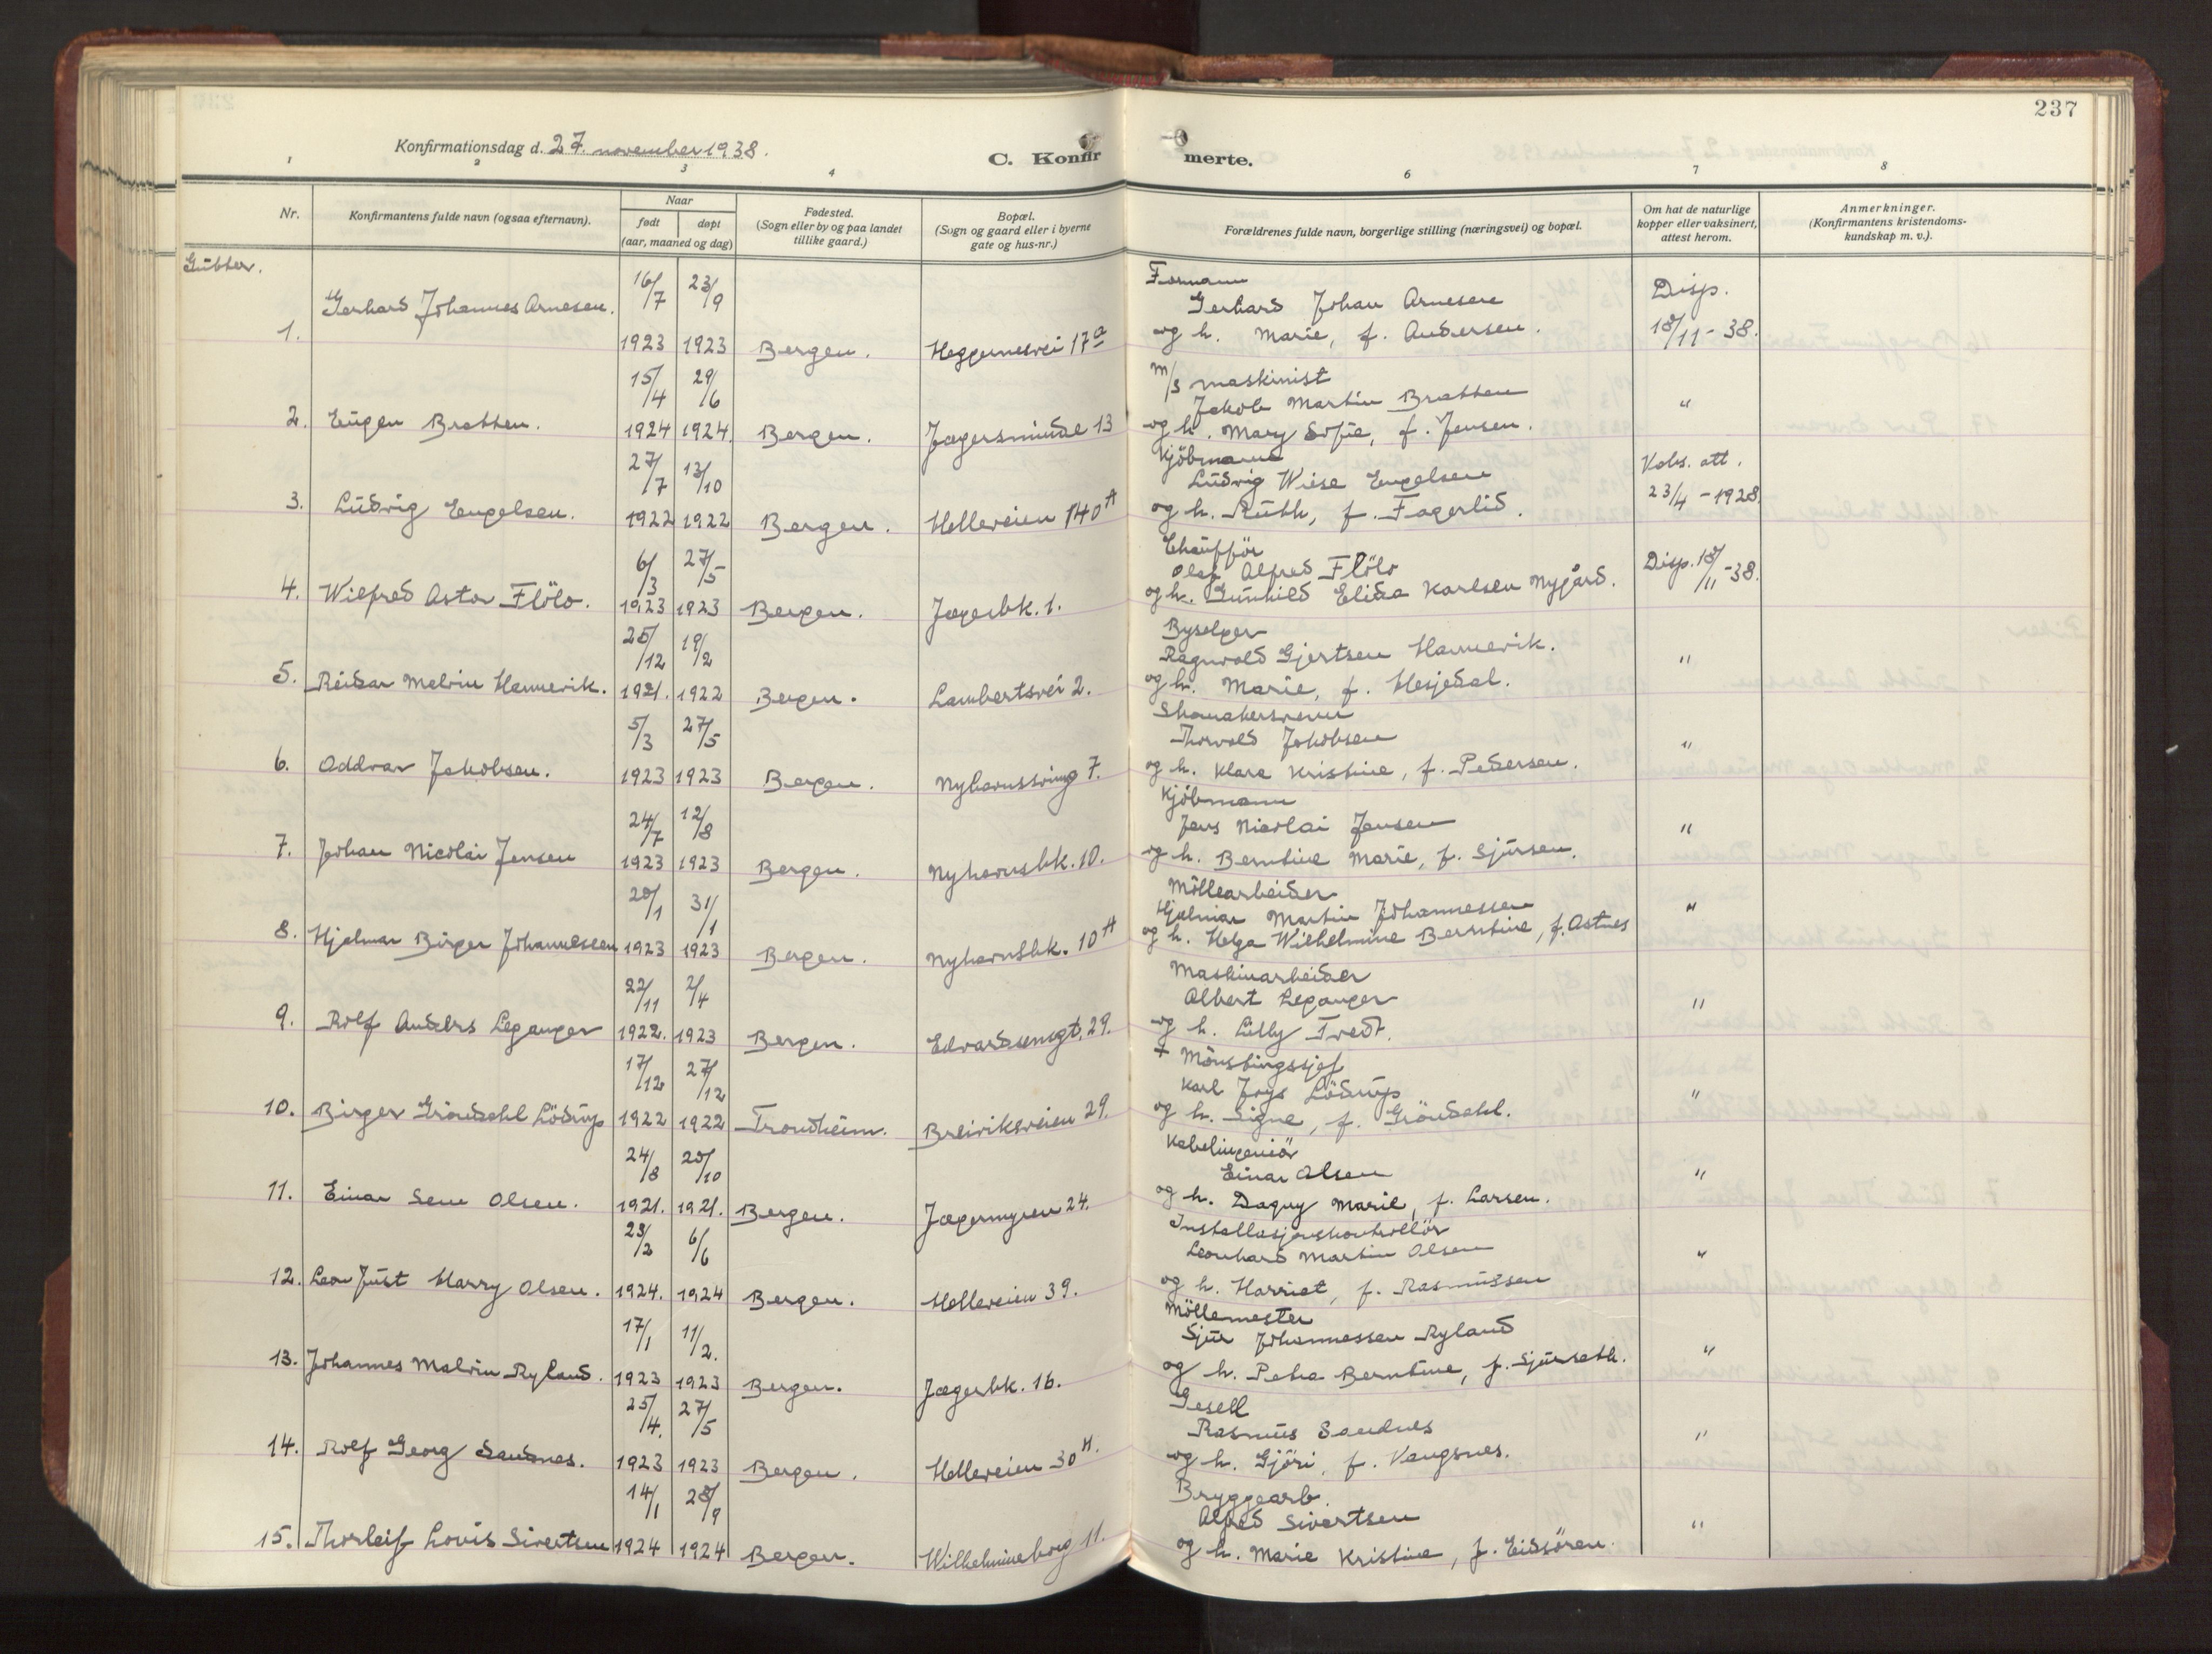 237
Konfirmationsdag d. 27. november 1938.
C. Konfirmerte.
1 2 3 4 6 7 8
Nr.
Konfirmantens fulde navn (ogsaa efternavn).
Naar
født døpt
(aar, maaned og dag)
Fødested.
(Sogn eller by og paa landet
tillike gaard.)
Bopæl.
(Sogn og gaard eller i byerne
gate og hus-nr.)
Forældrenes fulde navn, borgerlige stilling (næringsvei) og bopæl.
Om hat de naturlige
kopper eller vaksinert,
attest herom.
Anmerkninger.
(Konfirmantens kristendoms-
kundskap m. v.).
Gutter.
1. Gerhard Johannes Arnesen. 16/7 1923 23/9 1923 Bergen. Heggernesvei 17a
Formann
Gerhard Johan Arnesen
og h. Marie, f. Andersen.
Disp.
18/11-38.
2. Eugen Bratten. 15/4 1924 29/6 1924. Bergen. Jægersminde 13
m/s maskinist
Jakob Martin Bratten
og h. Mary Sofie, f. Jensen.
"
3. Ludvig Engelsen. 27/7 1922 13/10 1922 Bergen. Helleveien 140A
Kjöbmann
Ludvig Wiese Engelsen
og h. Ruth, f. Fagerlid.
Vaks. att.
23/4-1928
4. Wilfred Astor Flölo. 6/3 1923 27/5 1923 Bergen. Jægerbk. 1.
Chaufför
Olaf Alfred Flölo
og h. Gunhild Elida Karlsen Nygård.
Disp. 18/11-38.
5. Reidar Melvin Hammerik. 25/12 1921. 19/2 1922 Bergen. Lambertsvei 2.
Byselger
Ragnvald Gjertsen Hammerik.
og h. Marie, f. Hesjedal.
"
6. Oddvar Jakobsen. 5/3 1923 27/5 1923 Bergen. Nyhavnssving 7.
Skomakersvenn
Thorvald Jakobsen
og h. Klara Kristine, f. Pedersen.
"
7. Johan Nicolai Jensen 24/7 1923 12/8 1923 Bergen. Nyhavnsbk. 10.
Kjöbmann
Jens Nicolai Jensen
og h. Berntine Marie, f. Sjursen.
"
8. Hjalmar Birger Johannessen 20/1 1923 31/1 1923 Bergen. Nyhavnsbk. 10A
Möllearbeider
Hjalmar Martin Johannessen
og h. Helga Wilhelmine Berntine, f. Astnes
"
9. Rolf Anders Leganger 22/11 1922. 2/4 1923 Bergen. Edvardsensgt. 29.
Maskinarbeider
Albert Leganger
og h. Lilly Tvedt.
"
10. Birger Gröndahl Lödrup 17/12 1922 27/12 1922 Trondheim. Breiviksveien 29.
+ Mönstringssjef
Karl Joys Lödrup
og h. Signe, f. Gröndahl.
"
11. Einar Sem Olsen. 24/8 1921. 20/10 1921. Bergen. Jægermyren 24.
Kabelingeniör
Einar Olsen
og h. Dagny Marie, f. Larsen.
"
12. Leon Just Harry Olsen. 23/2 1924. 6/6 1924 Bergen. Helleveien 39.
Installasjonskontrollör
Leonhard Martin Olsen
og h. Harriet, f. Rasmussen
"
13. Johannes Malvin Ryland. 17/1 1923 11/2. 1923 Bergen. Jægerbk. 16.
Möllemester
Sjur Johannessen Ryland
og h. Petra Berntine, f. Sjurseth.
"
14. Rolf Georg Sandnes. 25/4. 1923 27/5 1923 Bergen. Helleveien 30A.
Gesell
Rasmus Sandnes
og h. Gjöri, f. Vangsnes.
"
15. Thorleif Louis Sivertsen 14/1 1924 28/9 1924 Bergen. Wilhelmineborg 11.
Bryggearb.
Alfred Sivertsen
og h. Marie Kristine, f. Eidsören.
"